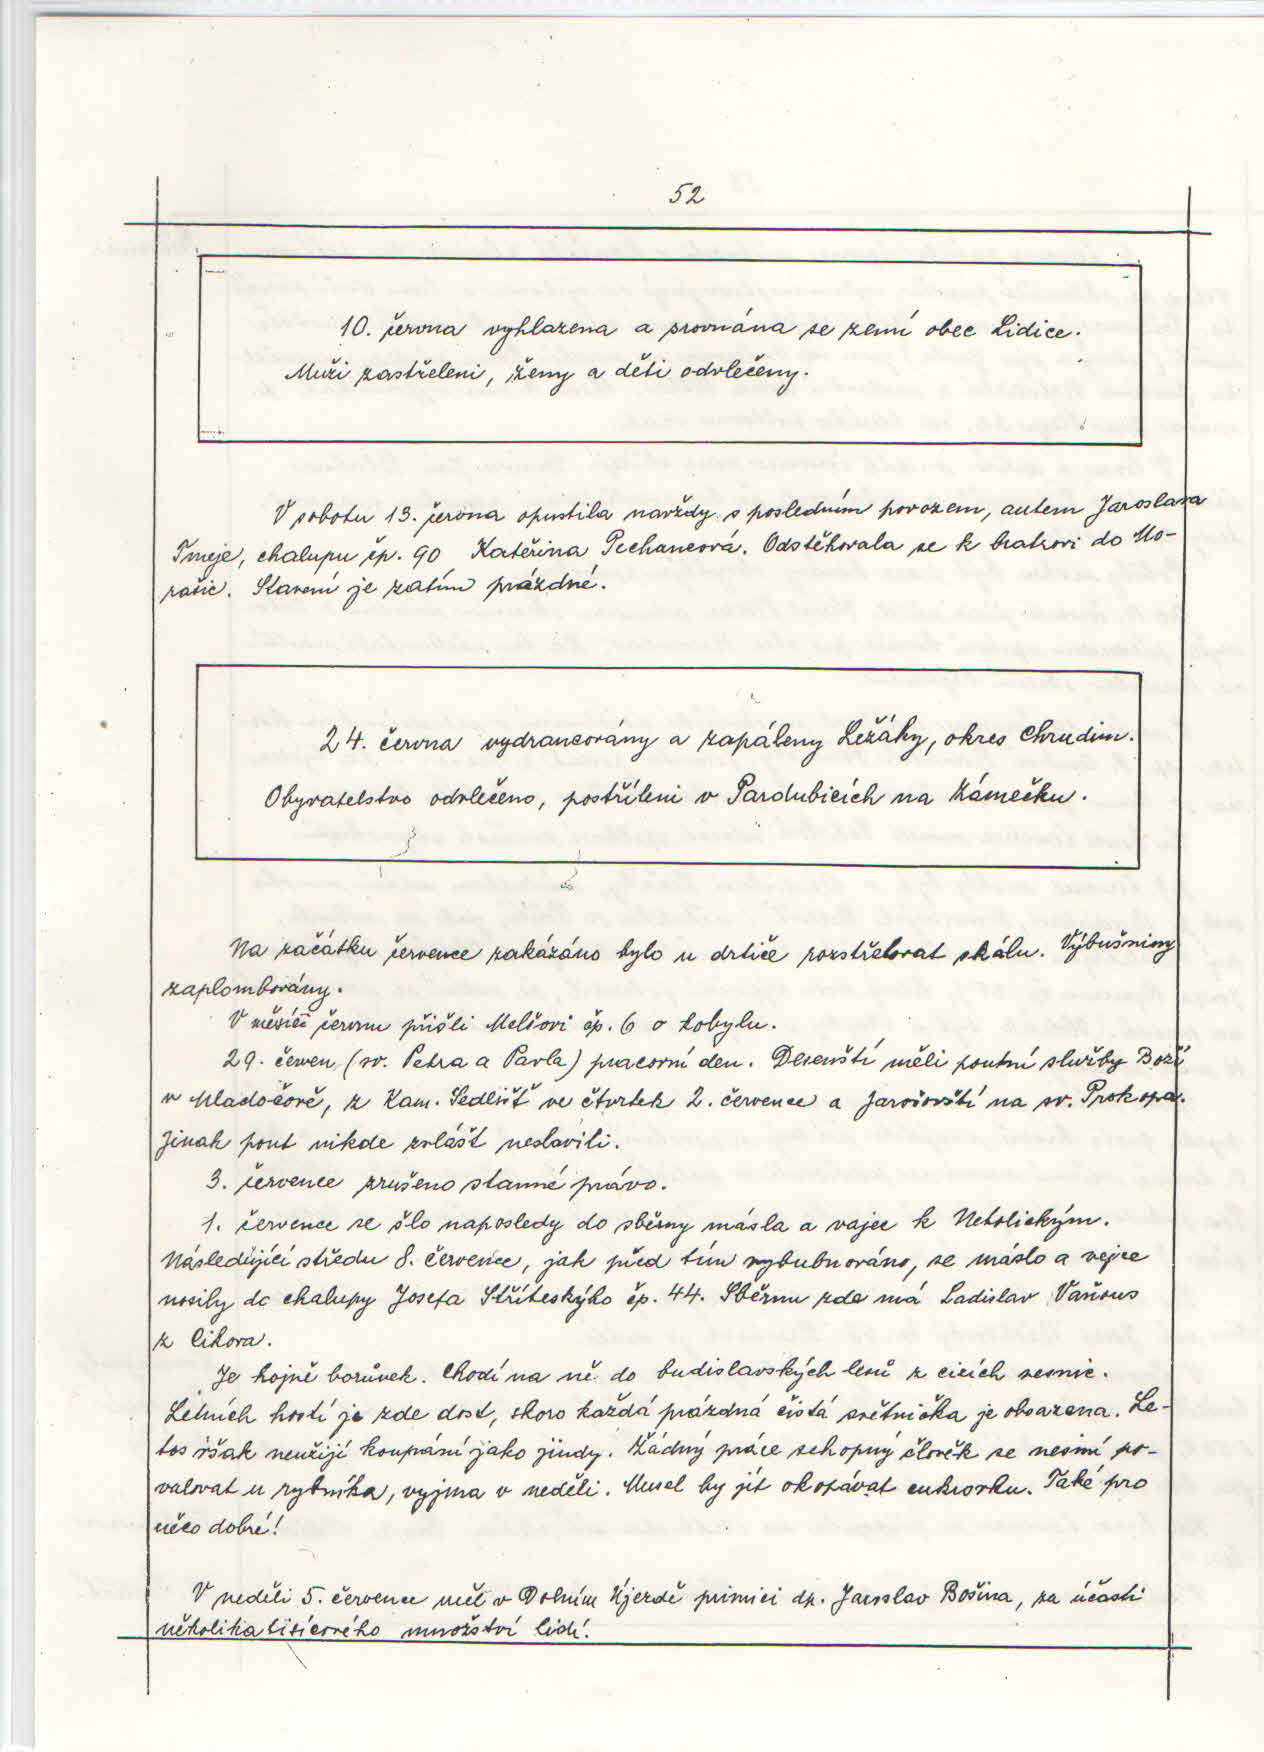 52
10. června vyhlazena a srovnána se zemí obec Lidice.
Muži zastřeleni, ženy a děti odvlečeny.
V sobotu 13. června opustila navždy s posledním povozem, autem Jaroslava
Tmeje, chalupu čp. 90 Kateřina Pechancová. Odstěhovala se k bratrovi do Mo-
rašic. Stavení je zatím prázdné.
24. června vydrancovány a zapáleny Ležáky, okres Chrudim.
Obyvatelstvo odvlečeno, postříleni v Pardubicích na Zámečku.
Na začátku července zakázáno bylo u drtiče rozstřelovat skálu. Výbušniny
zaplombovány.
V měsíci červnu přišli Melšovi čp. 6 o kobylu.
29. červen (sv. Petra a Pavla) pracovní den. Desenští měli poutní služby Boží
v Mladočově, z Kam. Sedlišť ve čtvrtek 2. července a Jarošovští na sv. Prokopa.
Jinak pout nikde zvlášť neslavili.
3. července zrušeno stanné právo.
1. července se šlo naposledy do sběrny másla a vajec k Netolickým.
Následující středu 8. července, jak před tím vybubnováno, se máslo a vejce
nosily do chalupy Josefa Stříteského čp. 44. Sběrnu zde má Ladislav Vaňous
z Cikova.
Je hojně borůvek. Chodí na ně do budislavských lesů z cizích vesnic.
Letních hostí je zde dost, skoro každá prázdná čistá světnička je obsazena. Le-
tos však neužijí koupání jako jindy. Žádný práce schopný člověk se nesmí po-
valovat u rybníka, vyjma v neděli. Musel by jít okopávat cukrovku. Také pro
něco dobré!
V neděli 5. července měl v Dolním Újezdě primici dp. Jaroslav Bošina, za účasti
několikatisícového množství lidí.